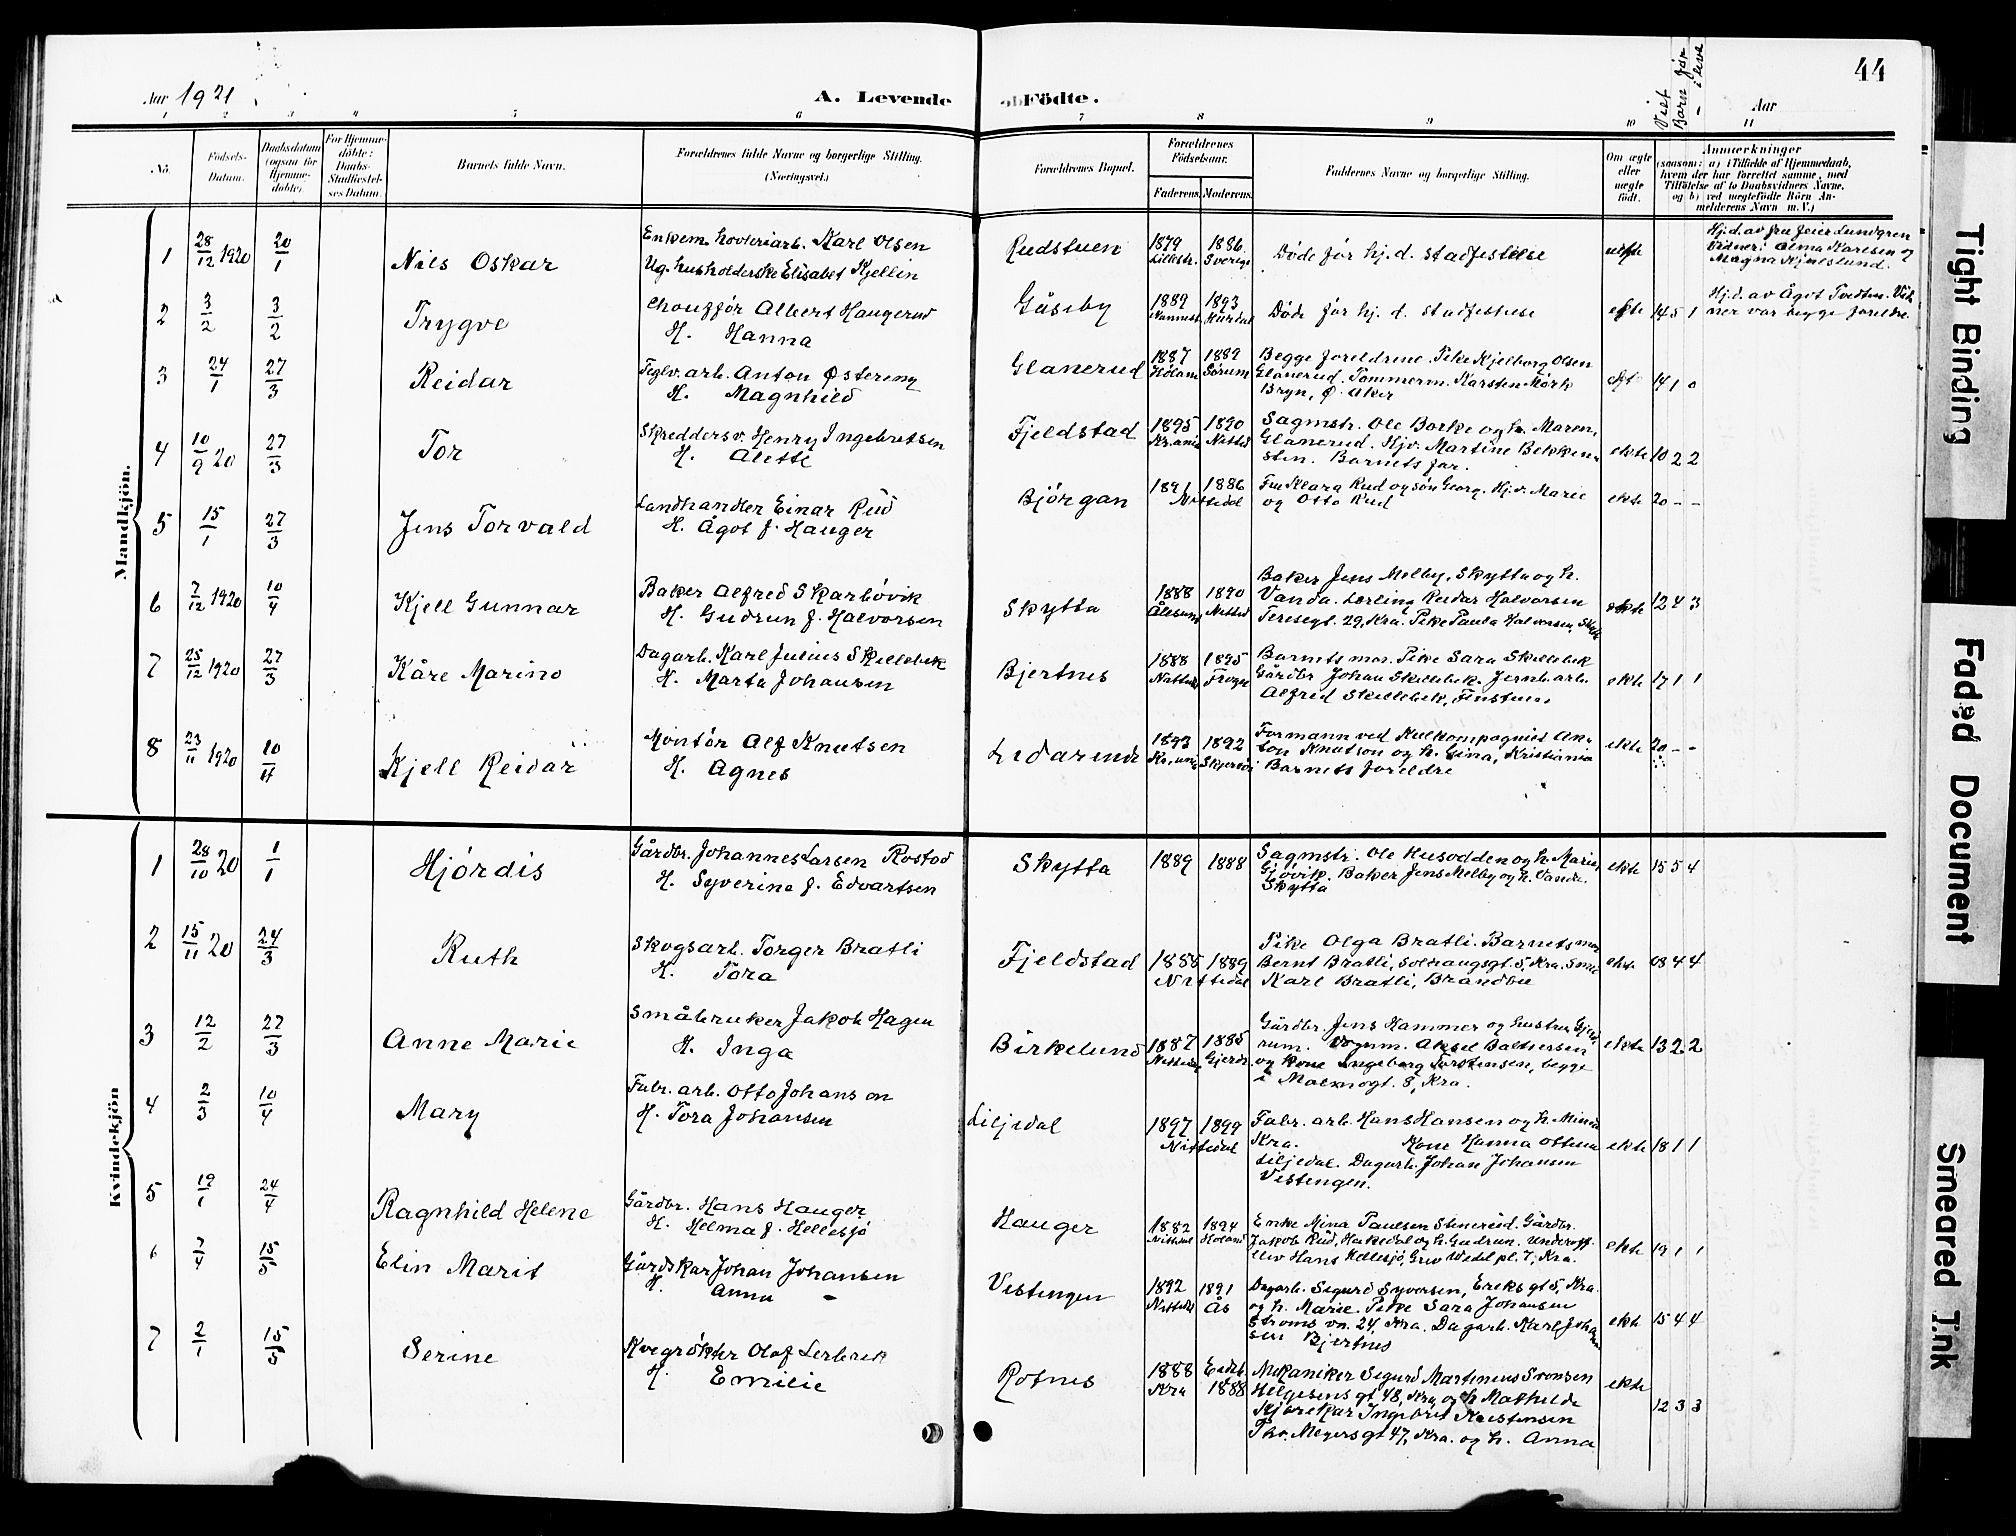 Aar 1921
A. Levende
Födte.
Viet
Barn før
- i live
44
Aar
1 2 3 4 5 6 7 8 9 10 11
No.
Födsels-
Datum.
Daabsdatum
(ogsaa for
Hjemme-
döbte)
For Hjemme-
döbte:
Daabs-
Stadfæstel-
ses Datum.
Barnets fulde Navn.
Forældrenes fulde Navne og borgerlige Stilling.
(Næringsvei.)
Forældrenes Bopæl.
Forældrenes
Födselsaar.
Faderens. Moderens.
Faddernes Navne og borgerlige Stilling.
Om ægte
eller
uægte
födt.
Anmærkninger
(saasom: a) i Tilfælde af Hjemmedaab,
hvem der har forrettet samme, med
Tilföielse af to Daabsvidners Navne,
og b) ved uægtefödte Börn An-
melderens Navn m. V.)
Mandkjön.
1 28/12 1920 20/1 Nils Oskar
Enkem. hovleriarb. Karl Olsen
Ug. husholderske Elisabet Kjellin
Rudstuen 1879 1886
Lillestr. Sverige
Døde før hj. d. stadfestelse
uekte
Hj.d. av fru Jeier Lundgren
Vidner: Alma Karlsen og
Magna
2 3/2 3/2 Trygve
Chauffør Albert Haugerud
H. Hanna
Gåsby 1889 1893
Nannest. Hurdal
Døde før hj. d. stadfestelse
ekte 14 5 1
Hj.d. av Ågot Tvedten. Vid
ner var begge foreldre
3 24/1 27/3 Reidar
Teglv. arb. Anton Østereng
H. Magnhild
Glanerud 1887 1889
Høland Sørum
Begge foreldrene. Pike Kjelborg Olsen
Glanerud. Tømmerm. Karsten Mørk
Bryn, Ø. Aker
ekte 14 1 0
4 10/9 20 27/3 Tor
Skreddersv. Henry Ingebretsen
H. Alette
Fjeldstad 1895 1890
Kr.ania Nitted
Sagmstr. Ole Borke og h. Maren,
Glanerud. Hjv. Martine Bekken-
sten. Barnets far.
ekte 10 2 2
5 15/1 27/3 Jens Torvald
Landhandler Einar Rud
H. Ågot f. Hauger
Bjørgan 1891 1886
Nittedal
Fru Klara Rud og søn Georg. Hjv. Marie
og Otto Rud
ekte 20 - -
6 7/12 1920 10/4 Kjell Gunnar
Baker Alfred Skarbøvik
H. Gudrun f. Halvorsen
Skytta 1888 1890
Ålesund Nitted
Baker Jens Melby, Skytta og h.
Vanda. Lærling Reidar Halvorsen
Teresegt. 29, Kra. Pike Paula Halvorsen, Skytt
ekte 12 4 3
7 25/12 1920 27/3 Kåre Marino
Dagarb. Karl Julius Skillebek
H. Marta Johansen
Bjertnes 1888 1895
Nitted Frogn
Barnets mor. Pike Sara Skillebek
Gårdbr Johan Skillebek. Jernb.arb.
Alfred Skillebek, Finstun.
ekte 17 1 1
8 23/11 1920 10/4 Kjell Reidar
Montør Alf Knutsen
H. Agnes
1893 1892
Formann ved Kulkompagniet An-
ton Knutson og h. Gina, Kristiania
Barnets foreldre
ekte 20 - -
Kvindekjön
1 28/10 20 1/1 Hjørdis
Gårdbr. Johannes Larsen Rostad
H. Syverine f. Edvartsen
Skytta 1889 1888
Sagmstr. Ole Husodden og h. Marie,
Gjøvik. Baker Jens Melby og h. Vanda.
Skytta
ekte 15 5 4
2 15/11 20 24/3 Ruth
Skogsarb. Torger Bratli
H. Tora
Fjeldstad 1885 1889
Nittedal
Pike Olga Bratli. Barnets mor
Bernt Bratli, Solhaugsgt. 5, Kra. Smed
Karl Bratli, Brandbu
ekte 08 4 4
3 12/2 27/3 Anne Marie
Småbruker Jakob Hagen
H. Inga
Birkelund 1887 1885
Nittedal Gjerdr.
Gårdbr. Jens Hammer og hustru, Gjerd-
rum. Vognm. Aksel Baltsersen
og Kone Ingeborg Torstensen, begge
i Malmøgt. 8, Kra.
ekte 13 2 2
4 2/3 10/4 Mary
Fabr. arb. Otto Johanson
H. Tora Johansen
Liljedal 1897 1899
Nittedal
Fabr. arb. Hans Hansen og h. Minda
Kra. Kone Hanna Ottesen
Liljedal. Dagarb. Johan Johansen
Vestengen.
ekte 18 1 1
5 19/1 24/4 Ragnhild Helene
Gårdbr. Hans Hauger
H. Helma f. Hellesjø
Hauger 1882 1894
Nittedal Høland
Enke Mina Paulsen Stenerud. Gårdbr.
Jakob Rud, Hakedal og h. Gudrun. Underoff.
elev Hans Hellesjø, Grev Wedel pl. 7, Kra.
ekte 19 1 1
6 7/4 15/5 Elin Marit
Gårdskar Johan Johansen
H. Anna -
Vestengen 1892 1891
Nittedal Ås
Dagarb. Sigurd Syversen, Eriks gt 5, Kra.
og h. Marie. Pike Sara Johansen
Strøms vn. 24 Kra. Dagarb. Karl Johan
sen Bjertnes
ekte 15 4 4
7 2/1 15/5 Serine
Kvegrøkter Olaf Lerbrek
H. Emilie
Rotnes 1888 Eidsb.
Kra 1888
Mekaniker Sigurd Martinius Svensen
Helgesens gt 48, Kra. og h. Mathilde
Kjørekar Ingebret Kristensen
Thv. Meyersgt 47, Kra. og h. Anna
ekte 12 3 3
Tight Binding
Faded Document
Smeared Ink